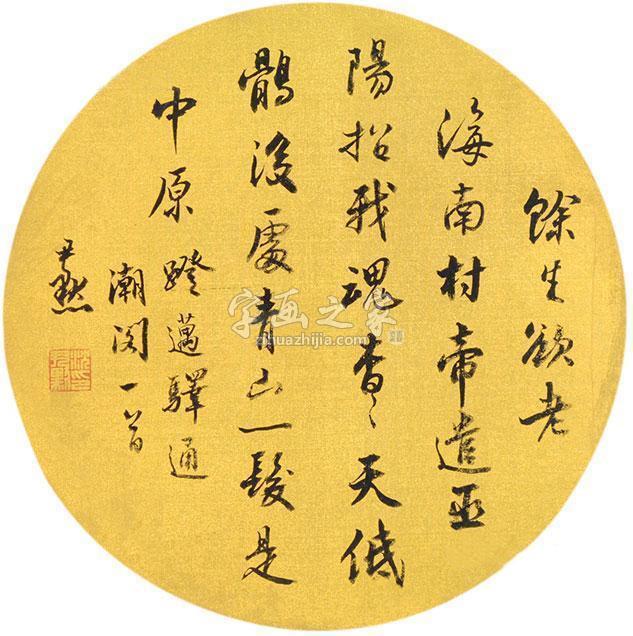 餘生欲老
海南村帝遣巫
陽招我魂杳〻天低
鶻没處青山一髮是
中原
蹬邁驛通
潮閣一首
尹默
字画之家
zihuazhijia.com